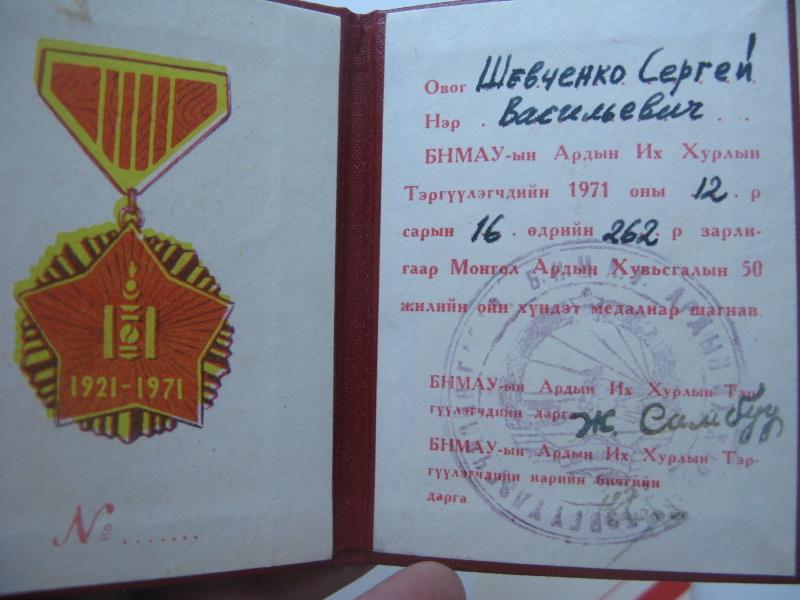 1921-1971
№ .......
Овог Шевченко Сергей
Нэр . Васильевич . .
БНМАУ-ын Ардын Их Хурлын
Тэргүүлэгчдийн 1971 оны 12 . р
сарын 16 . өдрийн 262 . р зарли-
гаар Монгол Ардын Хувьсгалын 50
жилийн ойн хүндэт медалиар шагнав.
БНМАУ-ын Ардын Их Хурлын Тэр-
гүүлэгчдийн дарга Ж. Самбуу
БНМАУ-ын Ардын Их Хурлын Тэр-
гүүлэгчдийн нарийн бичгийн
дарга
Б.Н.М.А.У. АРДЫН
ТЭРГҮҮЛЭГЧ